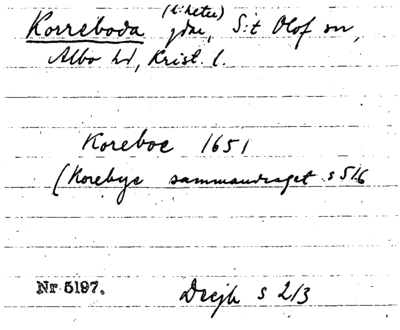 Korreboda (lhheter) gdar, S:t Olof sn,
Albo hd, Krist. l.
Koreboe 1651
(Korebye sammandraget s 516
Nr 5197.
s 213